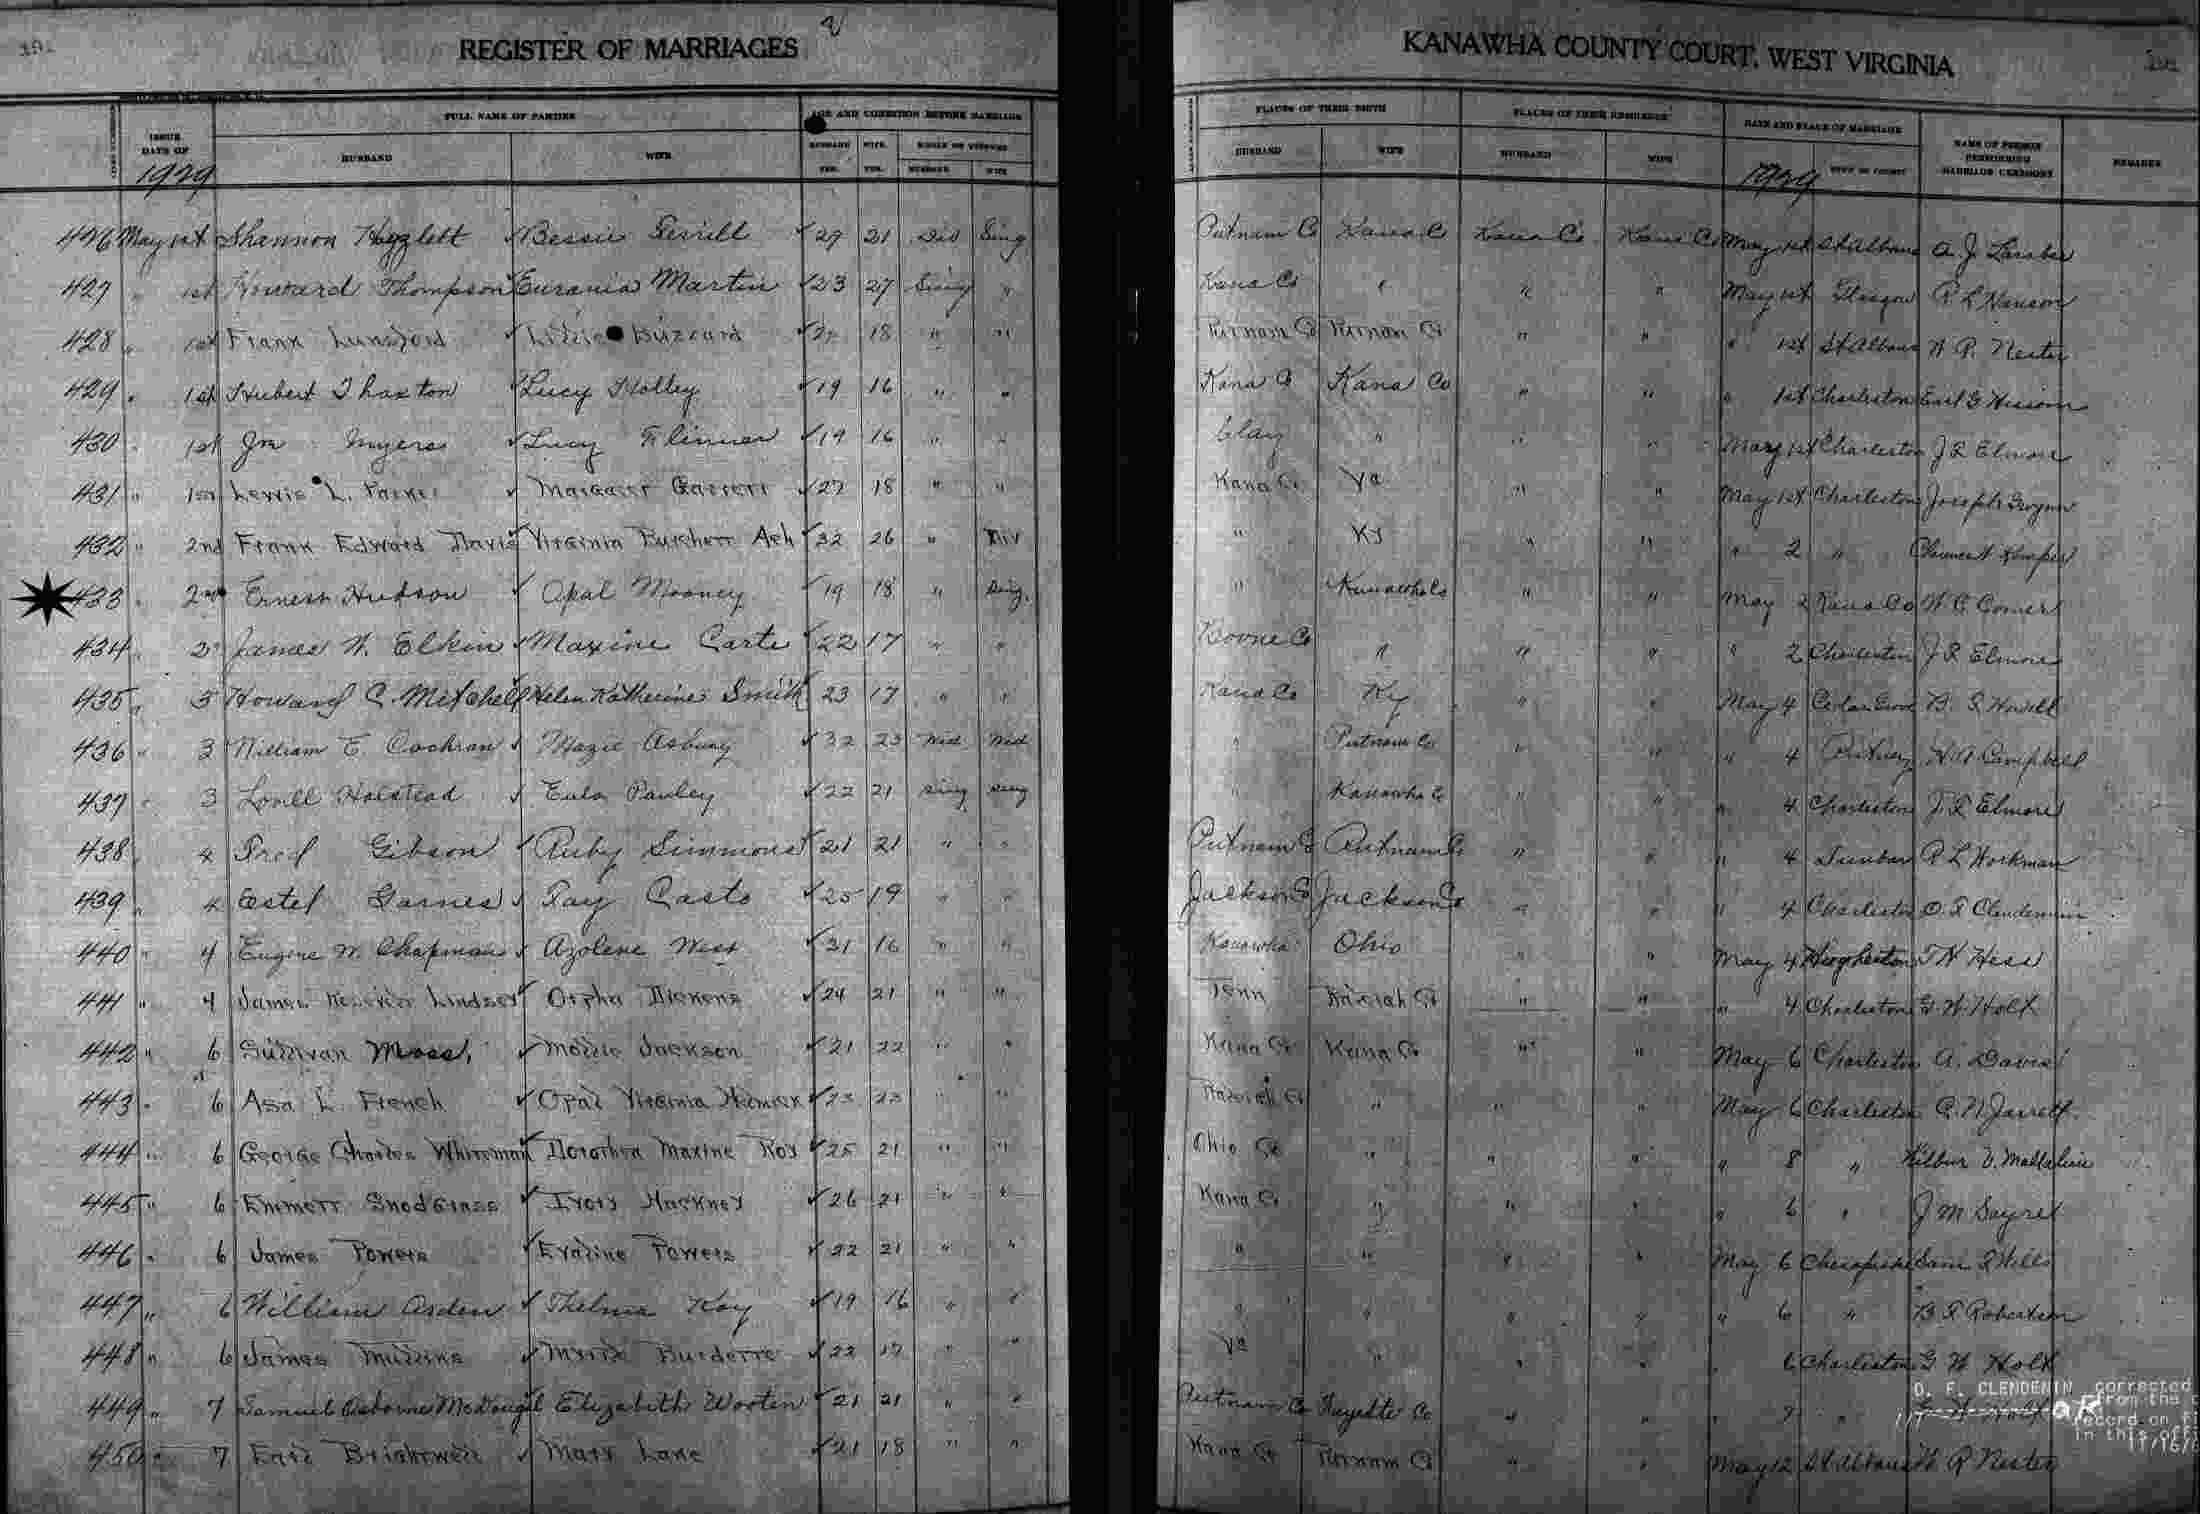 191
REGISTER OF MARRIAGES
KANAWHA COUNTY COURT, WEST VIRGINIA
FULL NAME OF PARTIES AGE AND CONDITION BEFORE MARRIAGE PLACES OF THEIR BIRTH PLACES OF THEIR RESIDENCE DATE AND PLACE OF MARRIAGE NAME OF PERSON PERFORMING MARRIAGE CEREMONY REMARKS
ISSUE DATE OF 1929 HUSBAND WIFE HUSBAND YRS. WIFE YRS. SINGLE OR WIDOWED HUSBAND WIFE HUSBAND WIFE HUSBAND WIFE 1929 TOWN OR COUNTY
426 May 1st Shannon Hazlett Bessie 29 21 Div Sing Putnam Co Kana Co Kana Co Kana Co May 1st St Albans A. J.
427 " 1st Howard Thompson Eurania Martin 23 27 Sing " Kana Co " " " May 1st Glasgow P L Hanson
428 " 1st Frank Lunsford Lillie Buzzard 18 " " Putnam Co Putnam Co " " " 1st St Albans W P. Nester
429 " 1st Hubert Thaxton Lucy Holley 19 16 " " Kana Co Kana Co " " " 1st Charleston Earl G Hissom
430 " 1st Jno Myers Lucy 19 16 " " Clay " " " May 1st Charleston J L Elmore
431 " 1st Lewis L. Parker Margaret Garrett 27 18 " " Kana Co Va " " May 1st Charleston Joseph
432 " 2nd Frank Edward Davis Virginia Burchett Ash 32 26 " Div " Ky " " " 2 " Clarence W Kemper
433 " 2nd Ernest Hudson Opal Mooney 19 18 " Sing. " Kanawha Co " " May 2 Kana Co W. C. Comer
434 " 2 James W. Elkin Maxine Carte 22 17 " " Boone Co " " " " 2 Charleston J L Elmore
435 " 3 Howard C. Mitchell Helen Katherine Smith 23 17 " " Kana Co Ky " " May 4 Cedar Grove B. S Howell
436 " 3 William E. Cochran Mazie Asbury 32 23 Wid Wid " Putnam Co " " " 4 H A Campbell
437 " 3 Lovell Holstead Eula Pauley 22 21 Sing Sing " Kanawha Co " " " 4 Charleston J. L Elmore
438 " 4 Fred Gibson Ruby Simmons 21 21 " " Putnam Co Putnam Co " " " 4 Dunbar P L Workman
439 " 4 Estel Garnes Fay Casto 25 19 " " Jackson Co Jackson Co " " " 4 Charleston O. F Clendennin
440 " 4 Eugene W. Chapman Azolene West 21 16 " " Kanawha Ohio " " May 4 Hugheston T H Hess
441 " 4 James Lindsey Orpha Dickens 24 21 " " Tenn Raleigh Co " " " 4 Charleston G. W. Holt
442 " 6 Sullivan Moss, Mollie Jackson 21 22 " " Kana Co Kana Co " " May 6 Charleston A. Davis
443 " 6 Asa L. French Opal Virginia 23 23 " " Raleigh Co " " " May 6 Charleston C. N Jarrett
444 " 6 George Charles Whiteman Dorothea Maxine Roy 25 21 " " Ohio Co " " " " 8 " Wilbur V. Mallalieu
445 " 6 Emmett Snodgrass Ivory Hackney 26 21 " " Kana Co " " " " 6 " J M Sayre
446 " 6 James Powers Evaline Powers 22 21 " " " " " " May 6 Chesapeake Sam Wills
447 " 6 William Asden Thelma Kay 19 16 " " " " " " " 6 " B. F Robertson
448 " 6 James Mullins Myrtle Burdette 22 17 " " Va " " " " 6 Charleston G W Holt
449 " 7 Samuel Osborne McDougal Elizabeth Wooten 21 21 " " Putnam Co Fayette Co " " " 7 " G W Holt
O. F. CLENDENIN corrected from the record on fi in this off 11/16/
450 " 7 Earl Brightwell Mary Lane 21 18 " " Kana Co Putnam Co " " May 12 St Albans W. P Nester